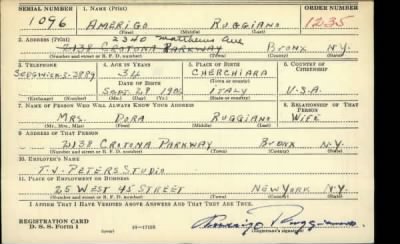 SERIAL NUMBER 1. NAME (Print) ORDER NUMBER
1096 AMERIGO RUGGIANO 1235
(First) (Middle) (Last)
2340 Matthews Ave
2. ADDRESS (Print)
2138 CROTONA PARKWAY BRONX N.Y.
(Number and street or R. F. D. number) (Town) (County) (State)
3. TELEPHONE 4. AGE IN YEARS 5. PLACE OF BIRTH 6. COUNTRY OF CITIZENSHIP
SEDGWICK3-2889 34 CHERCHIARA
DATE OF BIRTH (Town or county)
SEPT. 28 1906 ITALY U.S.A.
(Exchange) (Number) (Mo.) (Day) (Yr.) (State or country)
7. NAME OF PERSON WHO WILL ALWAYS KNOW YOUR ADDRESS 8. RELATIONSHIP OF THAT PERSON
MRS. DORA RUGGIANO WIFE
(Mr., Mrs., Miss) (First) (Middle) (Last)
9. ADDRESS OF THAT PERSON
2138 CROTONA PARKWAY BRONX N.Y.
(Number and street or R. F. D. number) (Town) (County) (State)
10. EMPLOYER'S NAME
T.J. PETERS STUDIO
11. PLACE OF EMPLOYMENT OR BUSINESS
25 WEST 45 STREET NEW YORK N.Y.
(Number and street or R. F. D. number) (Town) (County) (State)
I AFFIRM THAT I HAVE VERIFIED ABOVE ANSWERS AND THAT THEY ARE TRUE.
REGISTRATION CARD
D. S. S. Form 1 (over) 16-17105 Amerigo Ruggiano
(Registrant's signature)